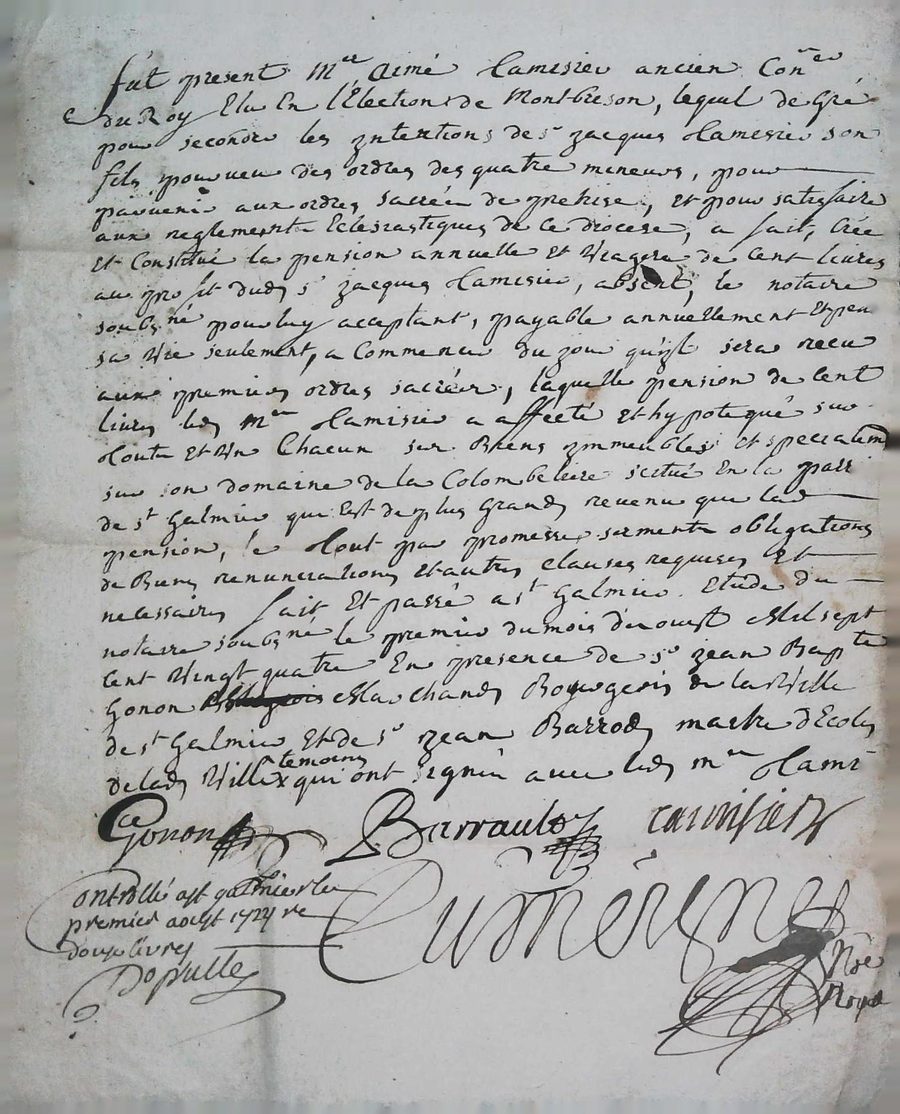 fut present Mre Aimé Hamisier ancien Coner
du Roy Elu En l'Election de Montbrison, lequel de Gré
pour seconder les Intentions de sr Jacques Hamisier son
fils pourveu des ordres des quatre mineurs, pour
parvenir aux ordres sacréz de pretrise, et pour satisfaire
aux reglements Eclesiastiques de ce diocese, a fait, Créé
Et Constitué la pension annuelle et Viagere de Cent livres
au profit dud. sr Jacques Hamisier, absent, le notaire
soubsné pour luy acceptant, payable annuellement Et pen
sa Vie seulement, a Commencer du jour qu'il sera recu
aux premiers ordres sacréz, laquelle pension de Cent
livres led. Mre Hamisier a affecté Et hypotequé sur
Touts Et Un Chacun ses Biens immeubles et specialem
sur son domaine de la Colombeliere scitué En la parr
de st Galmier qui Est de plus Grand revenu que lad
pension, le Tout par promesses serments obligations
de Biens renunciations Et autres clauses requises Et
necessaires fait Et passé a st Galmier Etude du
notaire soubsné le premier du mois d'aoust Mil sept
Cent Vingt quatre En presence de sr Jean Bapte
Gonon Marchand Bourgeois de la Ville
de st Galmier Et de sr Jean Barrod maitre d'Ecole
de lad. Ville temoins qui ont signéz avec led. Mre Hami
Gonon Barraud
Controllé a st galmier le
premier aoust 1724 re
douze livres
Nre
Royal